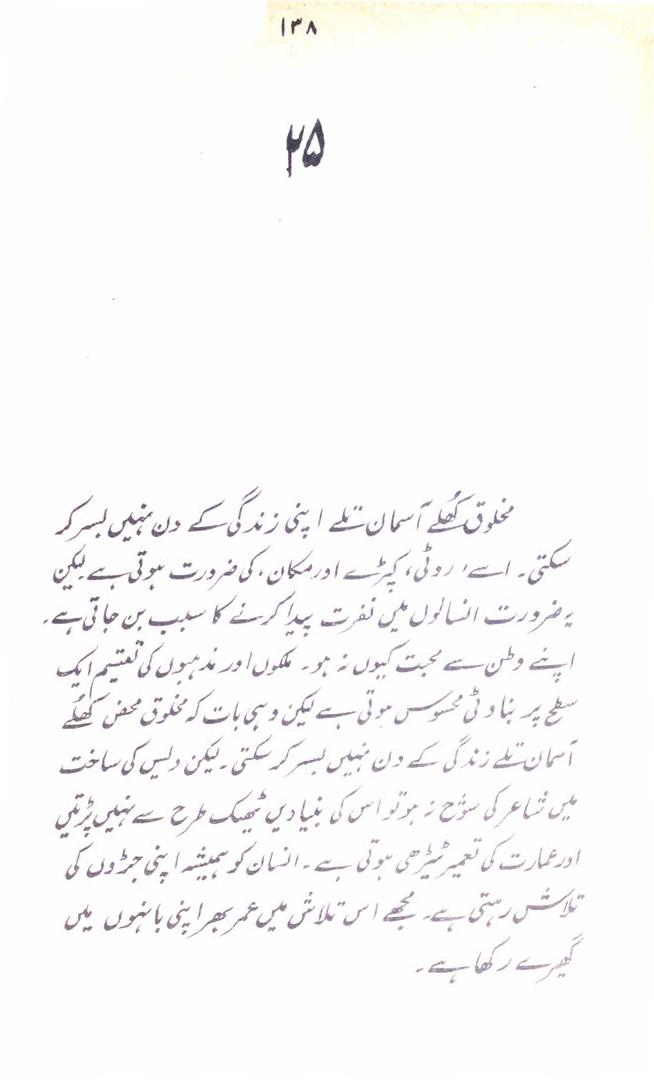 ۱۳۸
۲۵
مخلوق کھُلے آسمان تلے اپنی زندگی کے دن نہیں بسر کر
سکتی۔ اسے، روٹی، کپڑے اور مکان، کی ضرورت ہوتی ہے۔ لیکن
یہ ضرورت انسانوں میں نفرت پیدا کرنے کا سبب بن جاتی ہے۔
اپنے وطن سے محبت کیوں نہ ہو۔ ملکوں اور مذہبوں کی تقسیم ایک
سطح پر بناوٹی محسوس ہوتی ہے لیکن وہی بات کہ مخلوق محض کھُلے
آسمان تلے زندگی کے دن نہیں بسر کر سکتی۔ لیکن دیس کی ساخت
میں شاعر کی سوُح نہ ہو تو اس کی بنیادیں ٹھیک طرح سے نہیں پڑتیں
اور عمارت کی تعمیر ٹیڑھی ہوتی ہے۔ انسان کو ہمیشہ اپنی جڑوں کی
تلاش رہتی ہے۔ مجھے اس تلاش میں عمر بھر اپنی بانہوں میں
گھیرے رکھا ہے۔